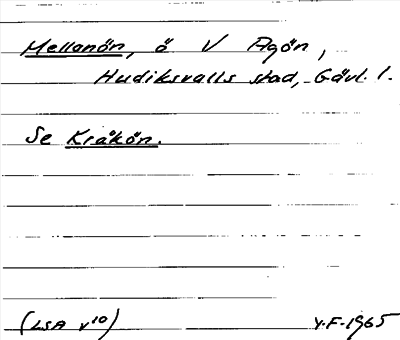 Mellanön, ö V Agön,
Hudiksvalls stad, Gävl. l.
Se Kråkön.
(LSA v¹⁰)
Y.F. 1965